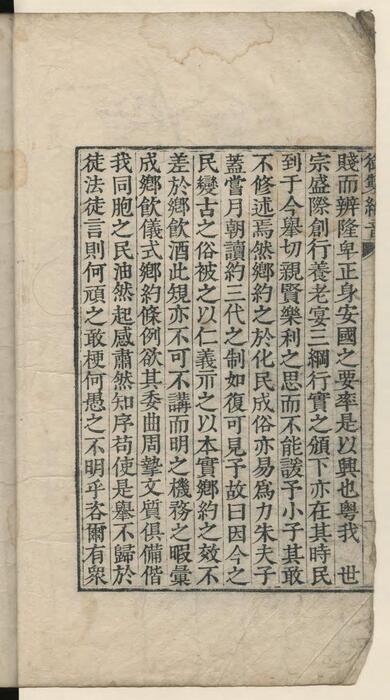 賤而辨隆卑正身安國之要率是以興也粤我　世
宗盛際創行養老宴三綱行實之頒下亦在其時民
到于今舉切親賢樂利之思而不能諼予小子其敢
不修述焉然鄉約之於化民成俗亦易爲力朱夫子
蓋嘗月朝讀約三代之制如復可見予故曰因今之
民變古之俗被之以仁義示之以本實鄉約之效不
差於鄉飲酒此䂓亦不可不講而明之機務之暇彙
成鄉飲儀式鄉約條例欲其委曲周摯文質俱備偕
我同胞之民油然起感肅然知序苟使是舉不歸於
徒法徒言則何頑之敢梗何愚之不明乎咨爾有衆